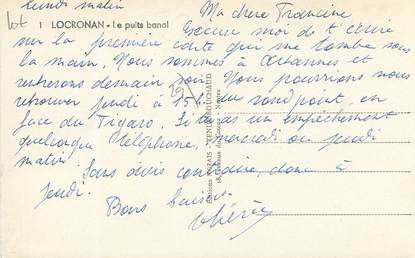 lundi matin
lot 1 LOCRONAN - le puits banal
Ma chère Francine
Excuse moi de t'écrire
sur la première carte qui me tombe sous
la main. Nous sommes à et
rentrerons demain soir. Nous pourrions nous
retrouver jeudi à 15h au rond point, en
face du Figaro. Si tu as un empêchement
quelconque téléphone, mercredi ou jeudi
matin.
Sans avis contraire, donc à
jeudi.
Bons baisers
Thérèse